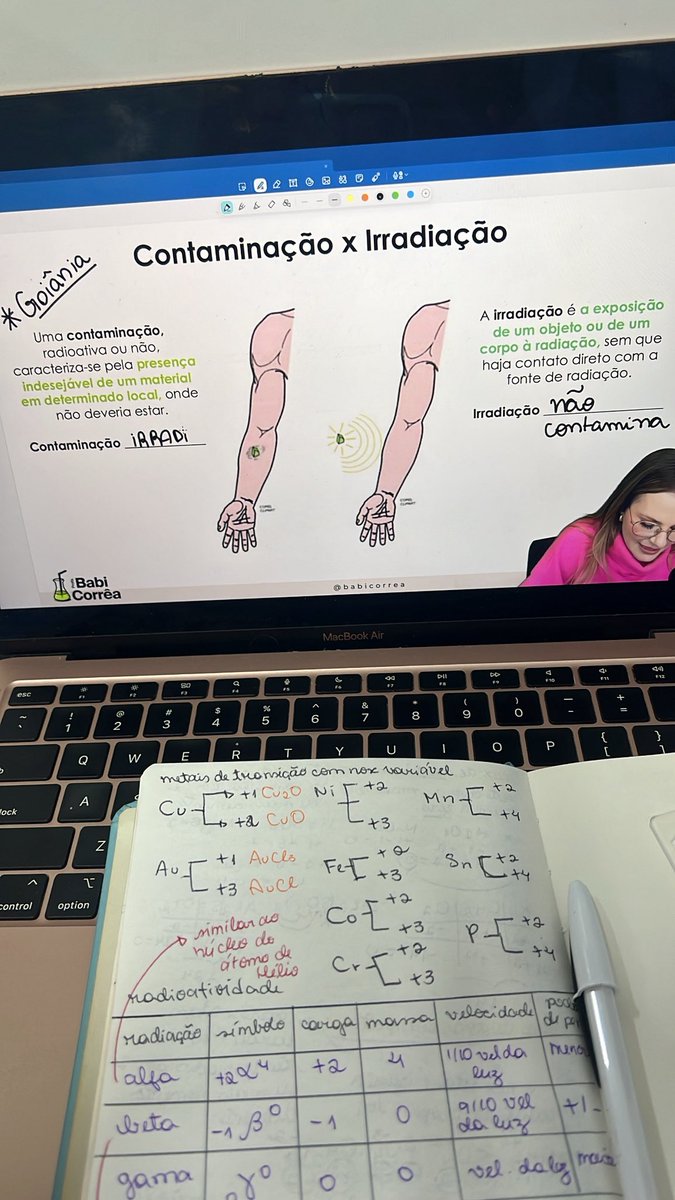 Contaminação x Irradiação
*Goiânia
Uma contaminação,
radioativa ou não,
caracteriza-se pela presença
indesejável de um material
em determinado local, onde
não deveria estar.
Contaminação IRRADI
A irradiação é a exposição
de um objeto ou de um
corpo à radiação, sem que
haja contato direto com a
fonte de radiação.
Irradiação não
contamina
Babi
Corrêa
@babicorrea
MacBook Air
esc F1 F2 F3 F4 F5 F6 F7 F8 F9 F10 F11 F12
~ ` ! 1 @ 2 # 3 $ 4 % 5 ^ 6 & 7 * 8 ( 9 ) 0 _ - + =
Q W E R T Y U I O P { [ } ]
lock A
Z
control option
metais de transição com nox variável
Cu +1 Cu2O Ni +2 Mn +2
+2 CuO +3 +4
Au +1 AuCl3 Fe +2 Sn +2
+3 AuCl +3 +4
Co +2 P +2
+3 +4
Cr +2
+3
similar ao
núcleo do
átomo de
Hélio
radioatividade
radiação símbolo carga massa velocidade
alfa +2α4 +2 4 1/10 vel da luz
beta -1β0 -1 0 9/10 vel da luz +1-
gama 0γ0 0 0 vel. da luz